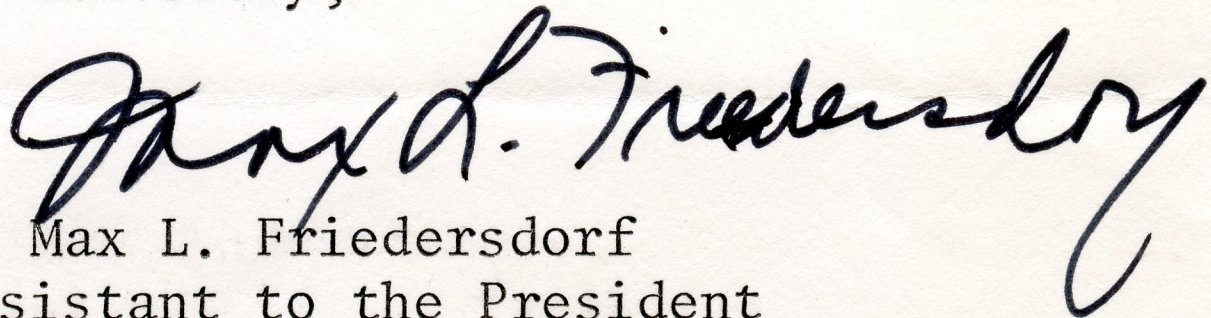 Max L. Friedersdorf
Max L. Friedersdorf
sistant to the President